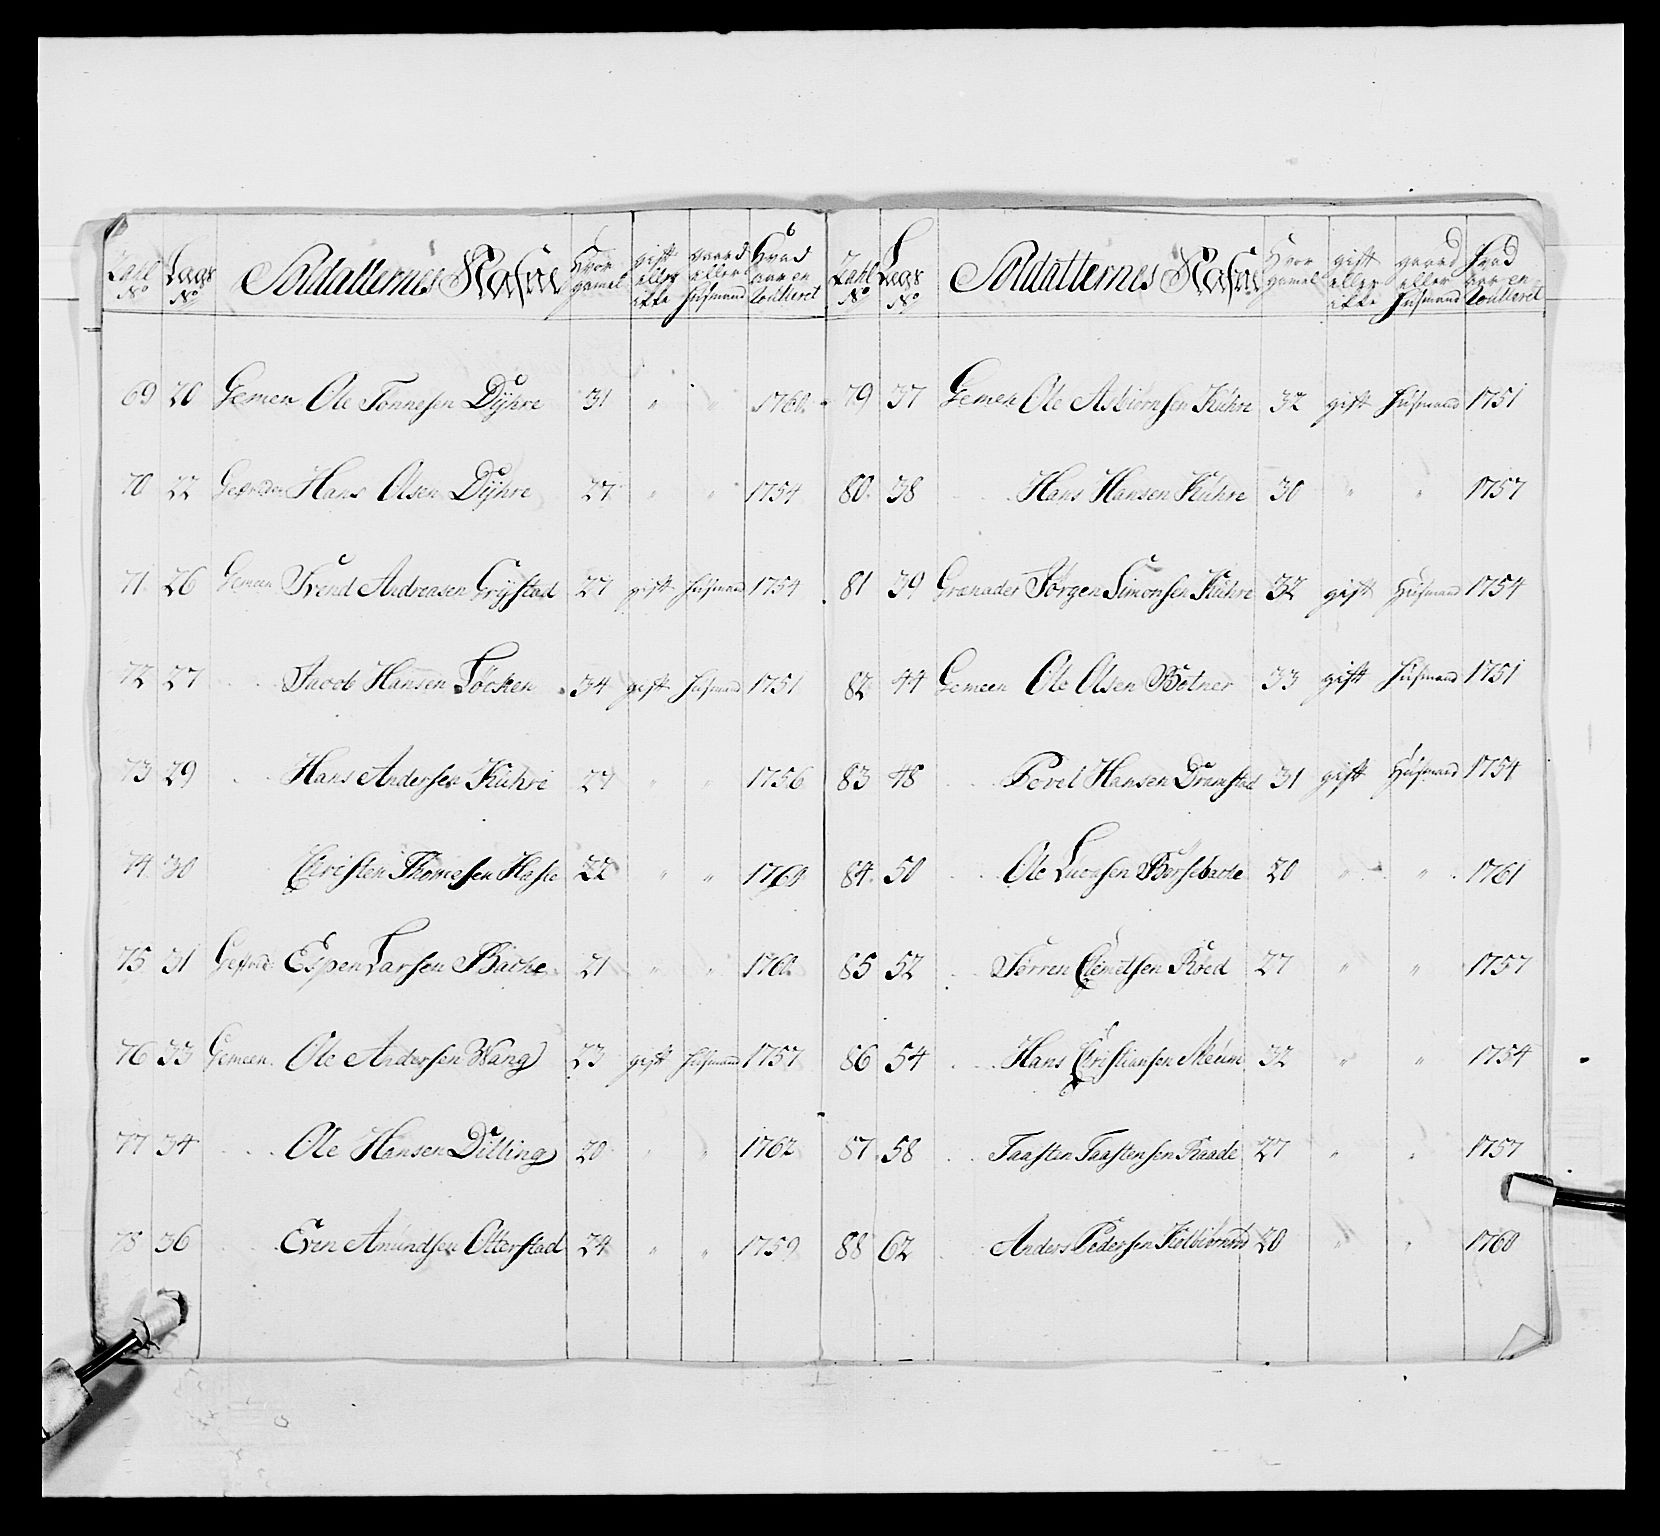 Tall No Lags No Soldatternes Nafne Hvor gamel gift eller ikke gaard eller Husmand Hvad aar en Roulleret
69 20 Gemen Ole Tønnesen Dÿhre 31 " " 1760
70 22 Gefrider Hans Olsen Dÿhre 27 " " 1754
71 26 Gemeen Svend Andreasen Grÿstad 27 gift Husmand 1754
72 27 Jacob Hansen Löcken 34 gift Husmand 1751
73 29 Hans Andersen Kuhre 27 " " 1756
74 30 Christen Thomesen 22 " " 1760
75 31 Espen Larsen Bache 21 " " 1760
76 33 Gemeen Ole Andersen Wang 23 gift Husmand 1757
77 34 Ole Hansen Dilling 20 " " 1762
78 36 Even Amundsen Otterstad 24 " " 1759
Tall No Lags No Soldatternes Nafne Hvor gamel gift eller ikke gaard eller Husmand Hvad aar en Roulleret
79 37 Gemen Ole Asbiørnsen Kuhre 32 gift Husmand 1751
80 38 Hans Hansen Kuhre 30 " " 1757
81 39 Granader Jørgen Simonsen Kuhre 32 gift Husmand 1754
82 44 Gemeen Ole Olsen Botner 33 gift Husmand 1751
83 48 Povel Hansen Dramstad 31 gift Husmand 1754
84 50 Ole 20 " " 1761
85 52 Sørren Clemetsen Röed 27 " " 1757
86 54 Hans Christiansen Meum 32 " " 1754
87 58 Taasten Taastensen Raade 27 " " 1757
88 62 Anders Pedersen 20 " " 1760